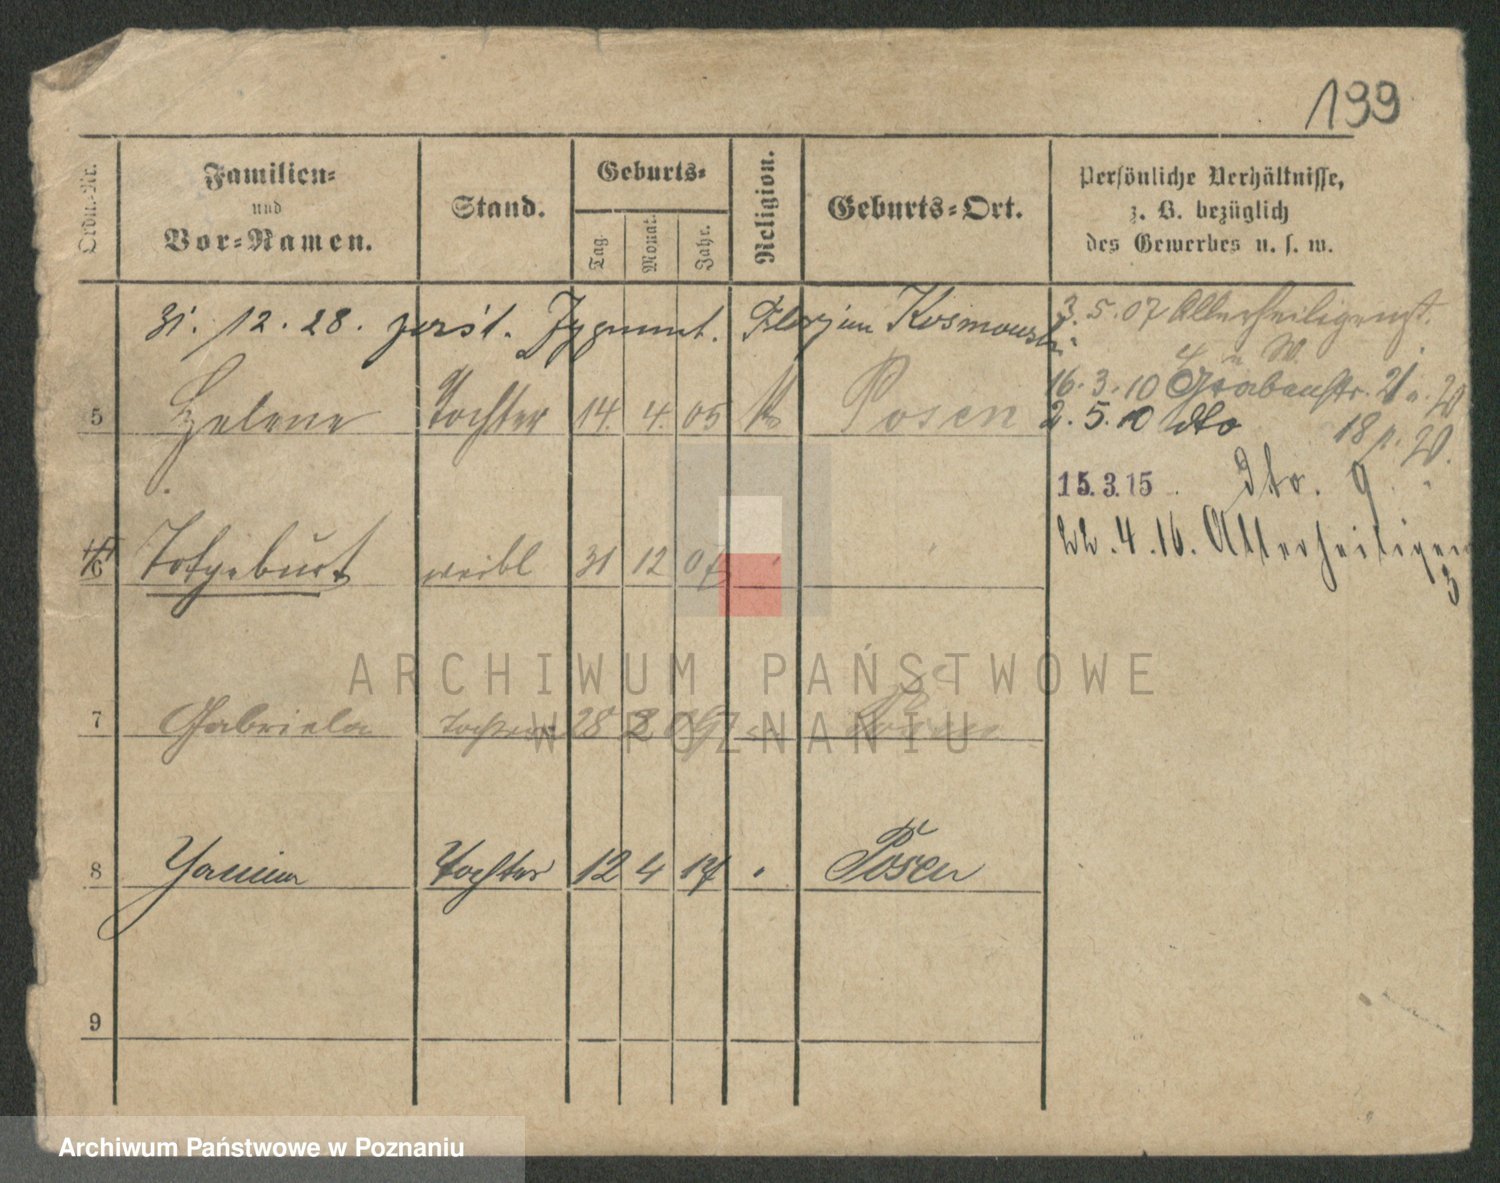 199
Ordn.-Nr.
Familien-
und
Vor-Namen.
Stand.
Geburts-
Tag.
Monat.
Jahr.
Religion.
Geburts-Ort.
Persönliche Verhältnisse,
z. B. bezüglich
des Gewerbes u. s. w.
31. 12. 28. Zygmunt. Florjan Kosmowski
3. 5. 07 Allerheiligenst.
4 u W.
16. 3. 10 Grabenstr. 21 u. 20
5 Helene Tochter 14. 4. 05 k Posen
2. 5. 10 dto 18 p. 20.
15.3.15 dto. 9
22. 4. 16. Allerheiligen
3
6 Totgeburt weibl 31 12 07
7 Gabriela Tochter 28 2 09 Posen
8 Janina Tochter 12 4 14 Posen
9
ARCHIWUM PAŃSTWOWE
W POZNANIU
Archiwum Państwowe w Poznaniu